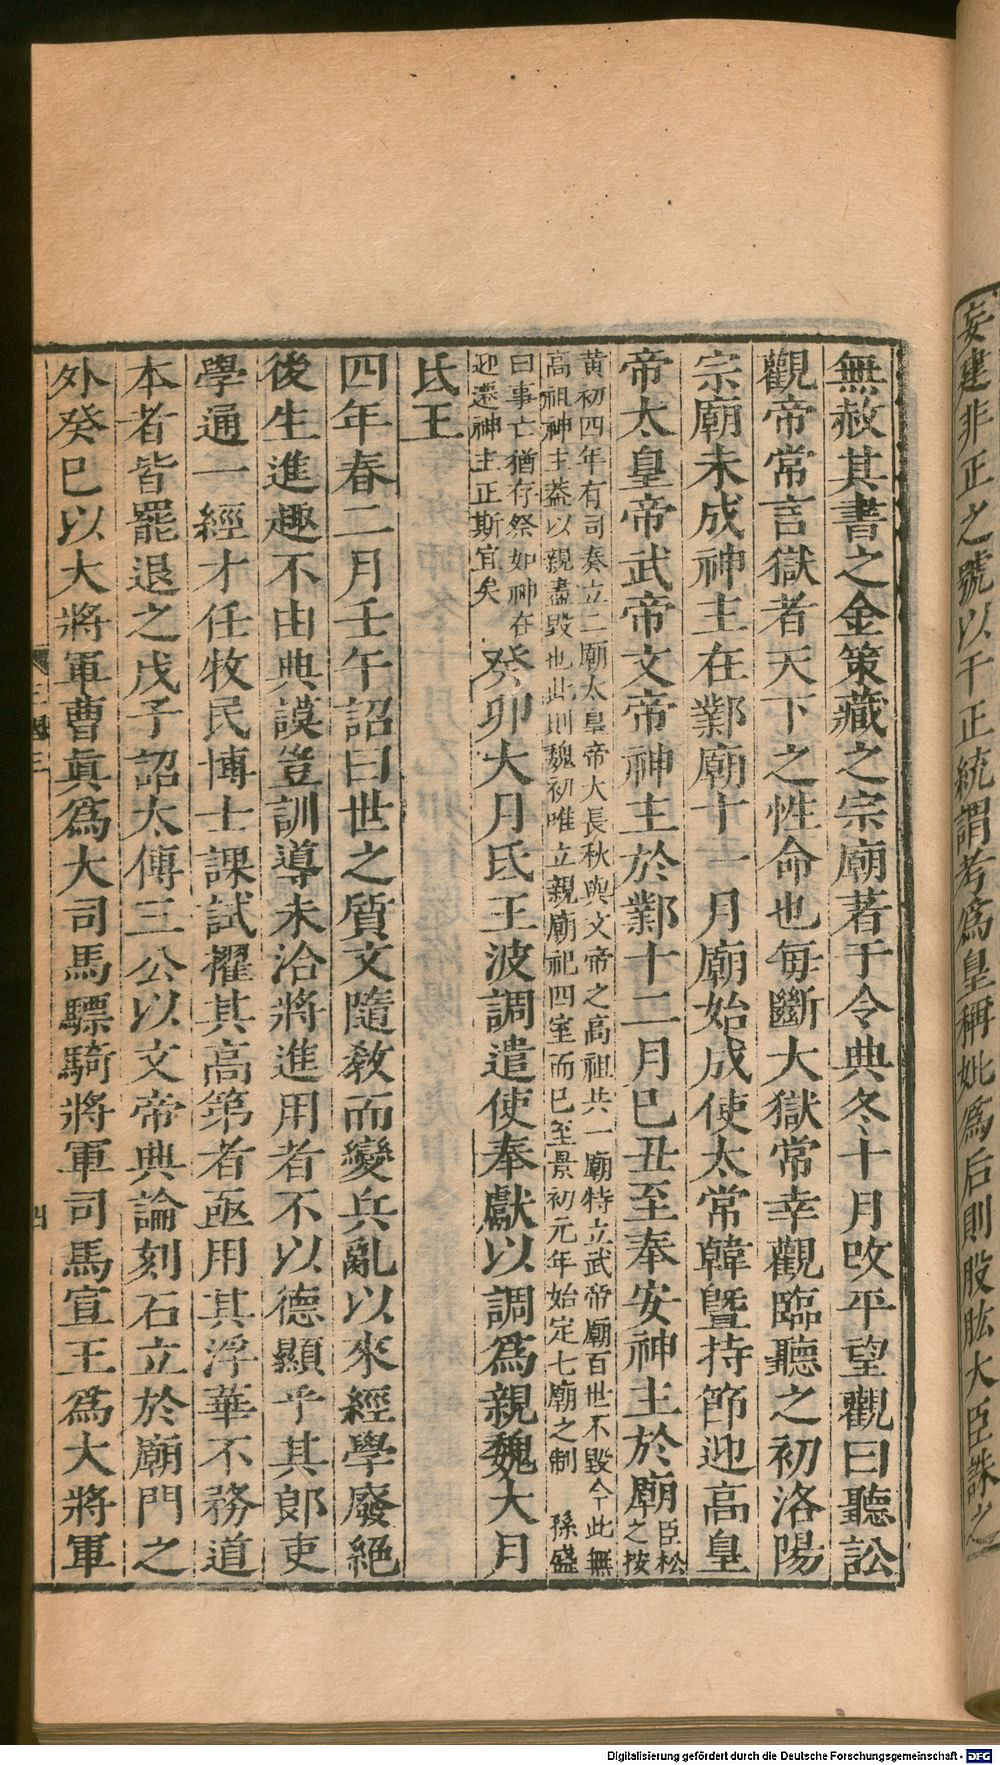 妄建非正之號以干正統謂考爲皇稱妣爲后則股肱大臣誅之
無赦其書之金策藏之宗廟著于令典冬十月改平望觀曰聽訟
觀帝常言獄者天下之性命也每斷大獄常幸觀臨聽之初洛陽
宗廟未成神主在鄴廟十一月廟始成使太常韓暨持節迎高皇
帝太皇帝武帝文帝神主於鄴十二月巳丑至奉安神主於廟
臣松
之按
黃初四年有司奏立二廟太皇帝大長秋與文帝之高祖共一廟特立武帝廟百世不毀今此無
高祖神主葢以親盡毀也此則魏初唯立親廟祀四室而巳至景初元年始定七廟之制　孫盛
曰事亡猶存祭如神在
迎遷神主正斯宜矣
癸卯大月氏王波調遣使奉獻以調爲親魏大月
氏王
四年春二月壬午詔曰世之質文隨敎而變兵亂以來經學廢絕
後生進趣不由典謨豈訓導未洽將進用者不以德顯乎其郎吏
學通一經才任牧民博士課試擢其高第者亟用其浮華不務道
本者皆罷退之戊子詔太傅三公以文帝典論刻石立於廟門之
外癸巳以大將軍曹眞爲大司馬驃騎將軍司馬宣王爲大將軍
Digitalisierung gefördert durch die Deutsche Forschungsgemeinschaft - DFG